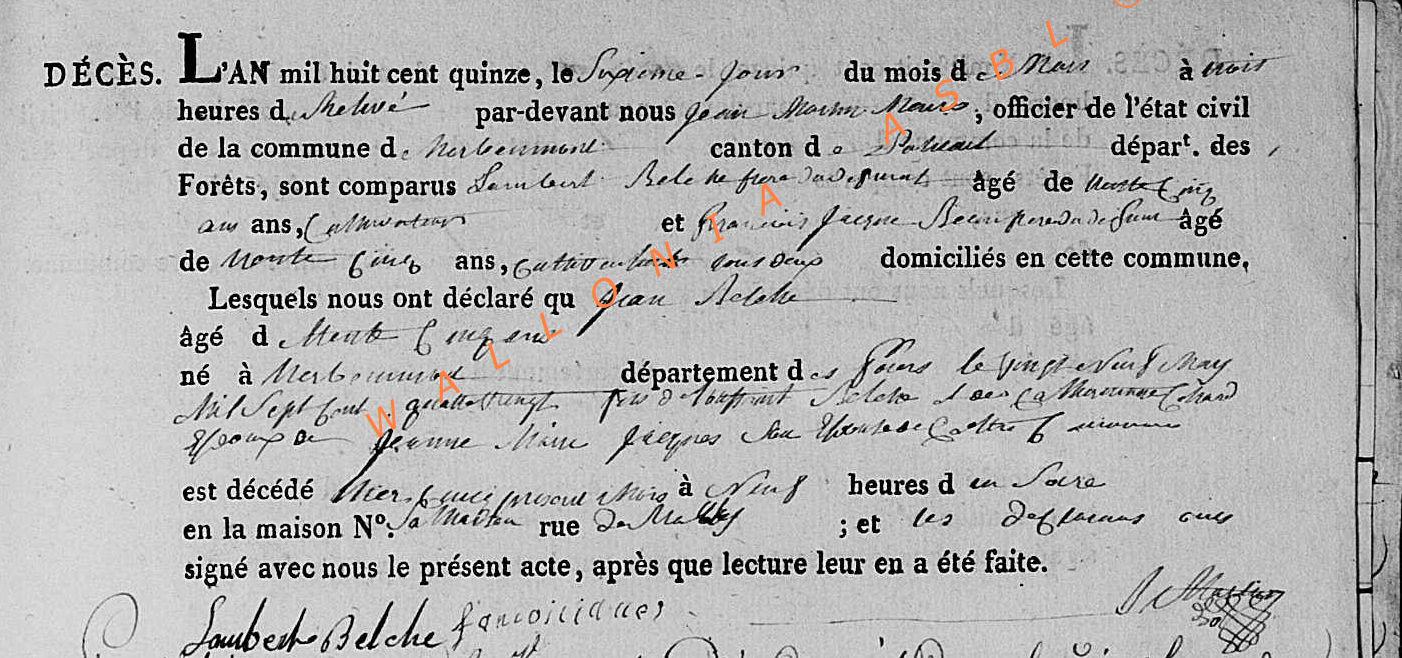 DÉCÈS. L'AN mil huit cent quinze, le Sixieme Jour du mois de Mars à trois
heures de Relevé par-devant nous Jean Martin, officier de l'état civil
de la commune de herbeumont canton de Paliseul départ. des
Forêts, sont comparus Lambert Belche frere du defunt âgé de trente Cinq
ans ans, Cultivateur et francois Jacque Beau frere du defunt âgé
de trente Cinq ans, Cultivateur tous deux domiciliés en cette commune,
Lesquels nous ont déclaré qu Jean Belche
âgé de trente Cinq ans
né à herbeumont département des le vingt Neuf May
Mil Sept Cent quattre vingt fils de Belche et de Catherinne
Epoux de Jeanne Marie Jacques de
est décédé hier Cinq present Mois à Neuf heures du Soire
en la maison N°. Sa Maison rue ; et les declarans ont
signé avec nous le présent acte, après que lecture leur en a été faite.
Lambert Belche francois iaques J Martin
WALLONIA ASBL